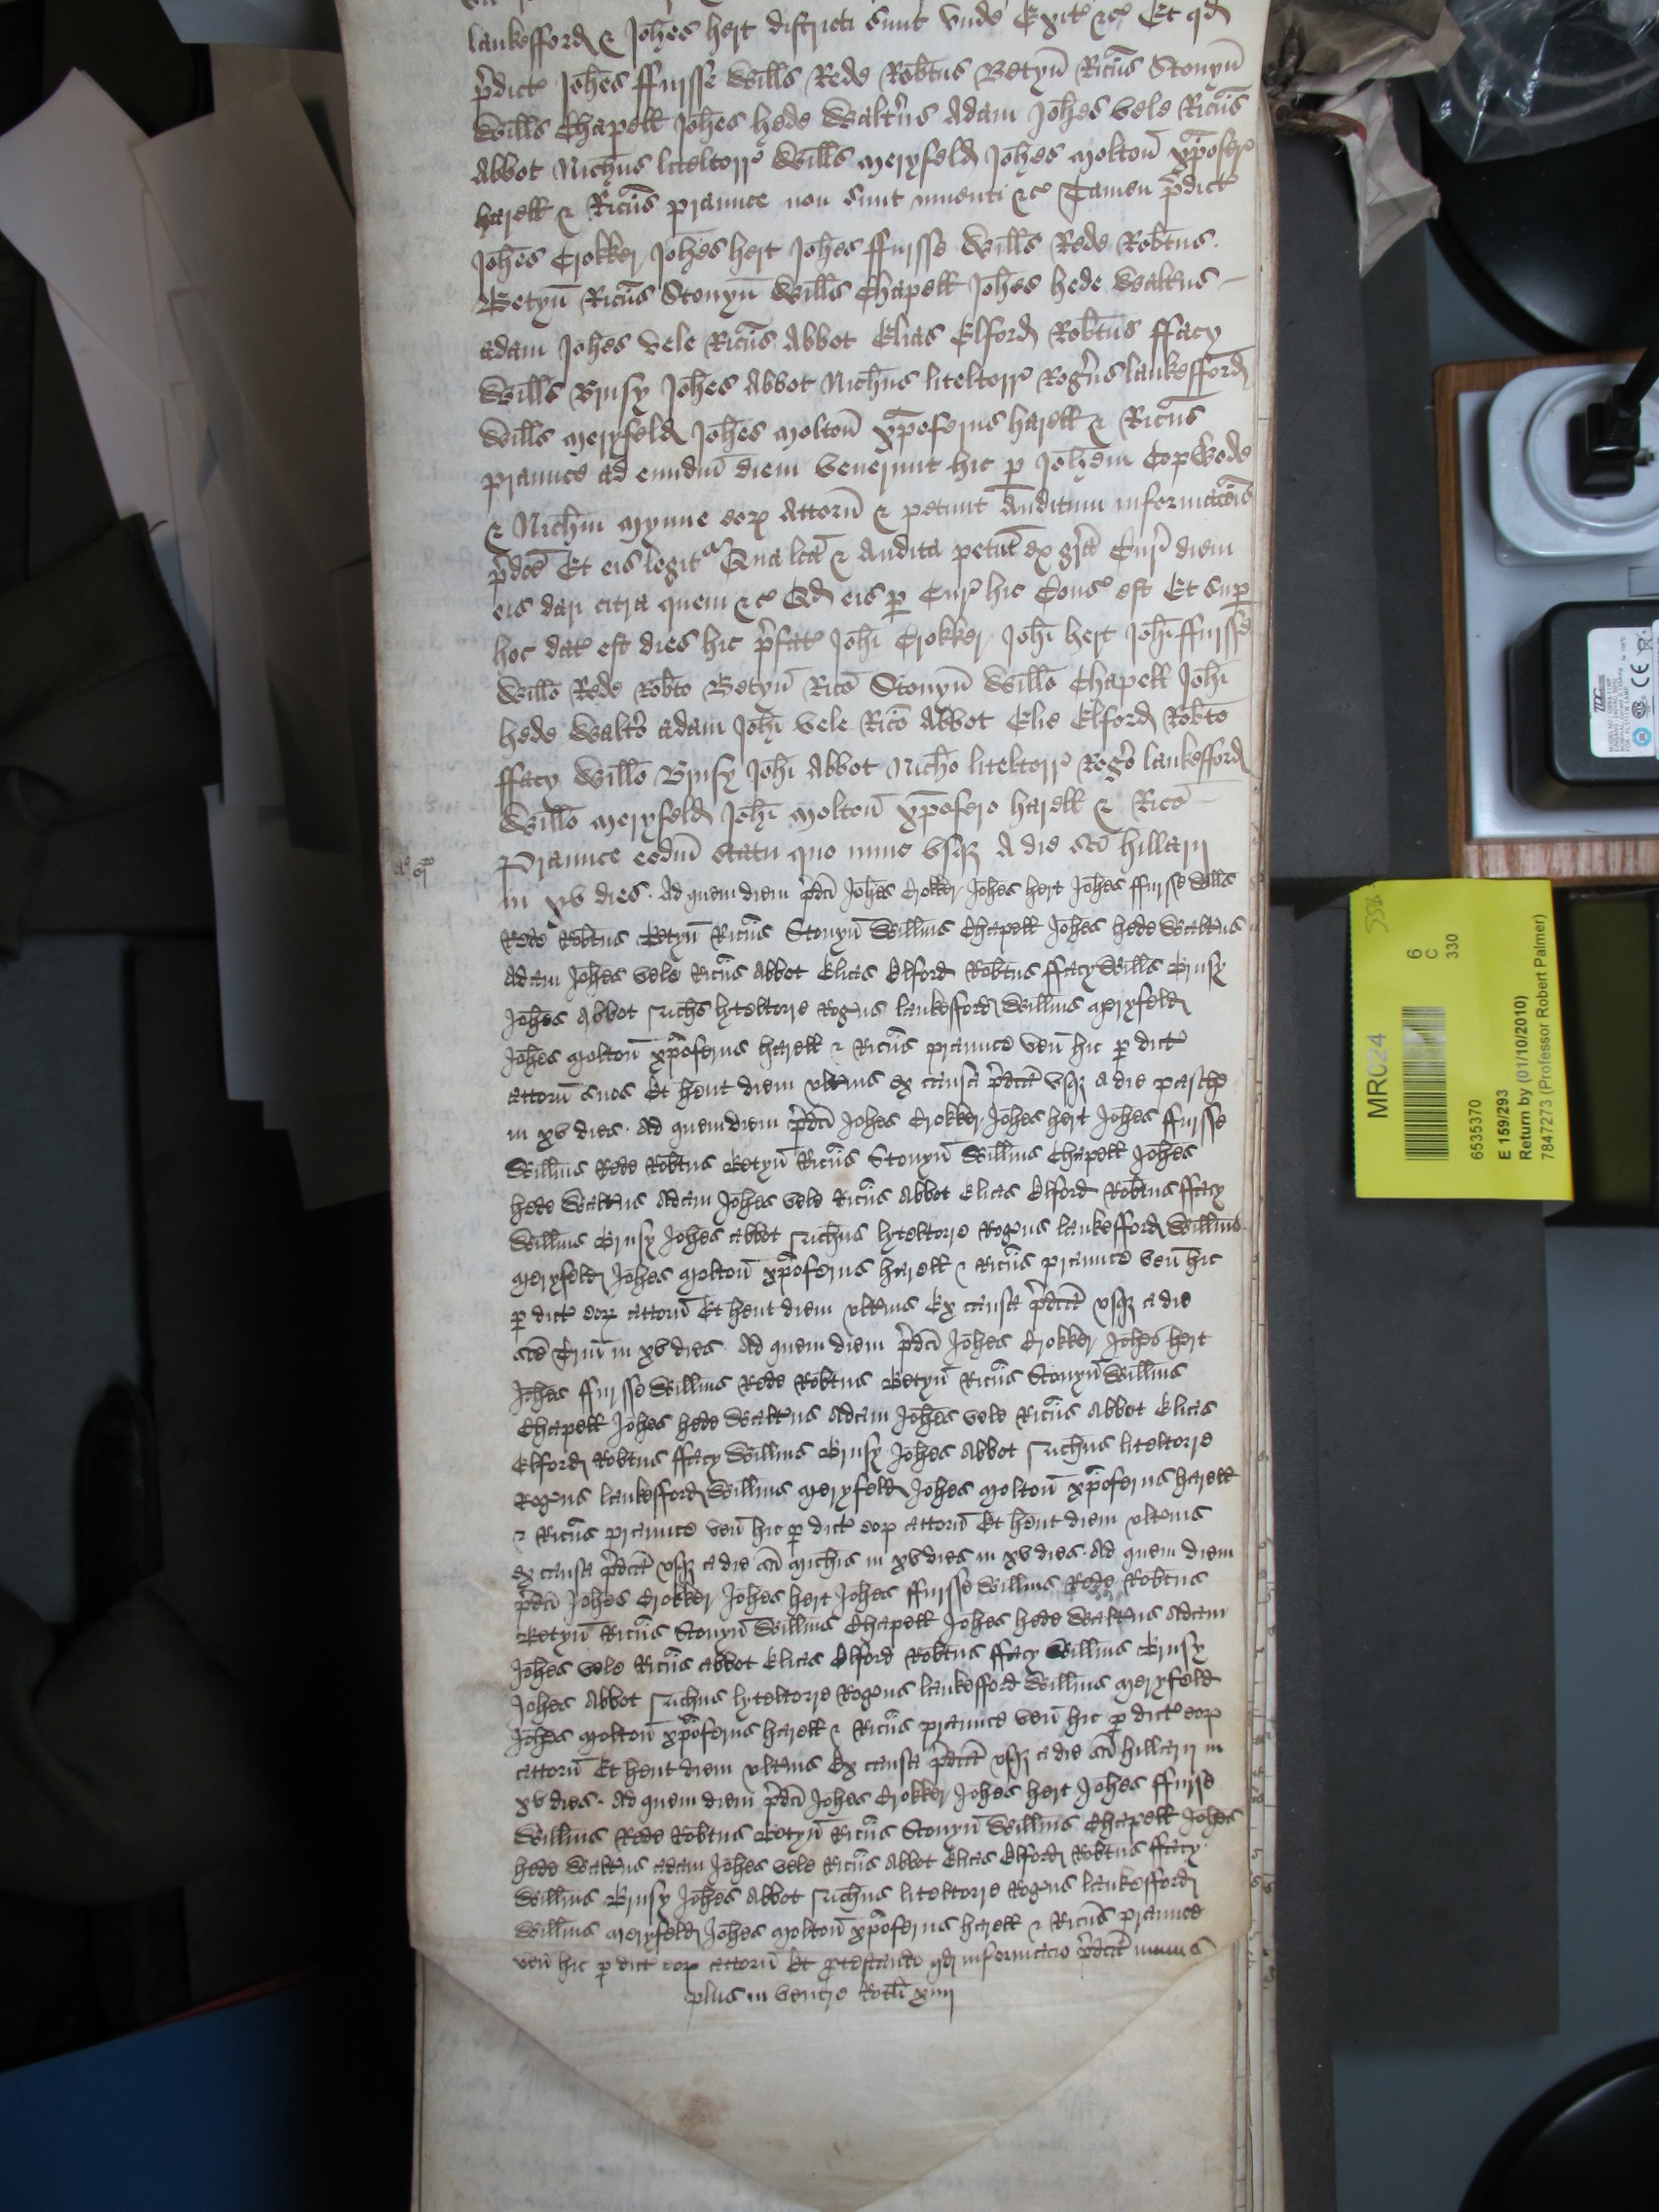 lankefford & Joh̄es hert districti sunt vnde Exit' &c' Et qd
p̄dict' Joh̄es ffursse Will̄s Rede Rob̄tus Betyn̄ Ric̄us Stonyn̄
Will̄s Chapell Joh̄es hede Walt̄us Adam Joh̄es Vele Ric̄us
Abbot Nich̄us liteltorr' Will̄s meryfeld Joh̄es molton̄ xp̄ofer'
harell & Ric̄us praunce non sunt inuenti &c' Tamen p̄dict'
Joh̄es Crokker Joh̄es hert Joh̄es ffursse Will̄s Rede Rob̄tus
Betyn̄ Ric̄us Stonyn̄ Will̄s Chapell Joh̄es hede Walt̄us
adam Joh̄es Vele Ric̄us Abbot Elias Elford Rob̄tus ffacy
Will̄s Brusy Joh̄es Abbot Nich̄us liteltorr' Roḡus lankefford
Will̄s meryfeld Joh̄es molton̄ xp̄oferus harell & Ric̄us
praunce ad eundm̄ diem venerunt hic p Joh̄em Copwode
& Nich̄m mynne eor' Attorn̄ & petunt Auditum informac̄ois
p̄dc̄e Et eis legit' Qua lc̄a & audita petut̄ ex gr̄a Cur' diem
eis dari citra quem &c' Qd eis p Cur' hic Conc' est Et sup
hoc dat' est dies hic p̄fat' Joh̄i Crokker Joh̄i hert Joh̄i ffursse
Will̄o Rede Rob̄to Betyn̄ Ric̄o Stonyn̄ Will̄o Chapell Joh̄i
hede Walt̄o adam Joh̄i Vele Ric̄o Abbot Elie Elford Rob̄to
ffacy Will̄o Brusy Joh̄i Abbot Nich̄o liteltorr' Roḡo lankefford
Will̄o meryfeld Joh̄i molton̄ xp̄ofero harell & Ric̄o
Praunce eodm̄ statu quo nunc vsq3 A die sc̄i hillarij
in xv dies. Ad quem diem p̄dc̄i Joh̄es Crokker Joh̄es hert Joh̄es ffursse Will̄s
Rede Rob̄tus Betyn̄ Ric̄us Stonyn̄ Willm̄s Chapell Joh̄es hede Walt̄us
Adam Joh̄es vele Ric̄us Abbot Elias Elford Rob̄tus ffacy Will̄s Brusy
Joh̄es Abbot Nich̄s lyteltorre Roḡus lankefford Willm̄s meryfeld
Joh̄es molton̄ xp̄oferus harell & Ric̄us praunce ven̄ hic p dict'
attorn̄ suos Et hent diem vlt̄ius ex causa p̄dc̄a vsq3 a die pasche
in xv dies. Ad quem diem p̄dc̄i Joh̄es Crokker Joh̄es hert Joh̄es ffursse
Willm̄s Rede Rob̄tus Betyn̄ Ric̄us Stonyn̄ Willm̄s Chapell Joh̄es
hede Walt̄us Adam Joh̄es vele Ric̄us Abbot Elias Elford Rob̄tus ffacy
Willm̄s Brusy Joh̄es abbot Nich̄us lyteltorre Roḡus lankefford Willm̄s
meryfeld Joh̄es molton̄ xp̄oferus harell & Ric̄us praunce ven̄ hic
p dict' eor' attorn̄ Et hent diem vlt̄ius Ex causa p̄dc̄a vsq3 a die
sc̄e Trin̄ in xv dies. Ad quem diem p̄dc̄i Joh̄es Crokker Joh̄es hert
Joh̄es ffursse Willm̄s Rede Rob̄tus Betyn̄ Ric̄us Stonyn̄ Willm̄s
Chapell Joh̄es hede Walt̄us Adam Joh̄es vele Ric̄us Abbot Elias
Elford Rob̄tus ffacy Willm̄s Brusy Joh̄es Abbot Nich̄us liteltorre
Roḡus lankefford Willm̄s meryfeld Joh̄es molton̄ xp̄oferus harell
& Ric̄us praunce ven̄ hic p dict' eor' attorn̄ Et hent diem vlt̄ius
ex causa p̄dc̄a vsq3 a die sc̄i mich̄is in xv dies in xv dies. Ad quem diem
p̄dc̄i Joh̄es Crokker Joh̄es hert Joh̄es ffursse Willm̄s Rede Rob̄tus
Betyn̄ Ric̄us Stonyn̄ Willm̄s Chapell Joh̄es hede Walt̄us Adam
Joh̄es vele Ric̄us abbot Elias Elford Rob̄tus ffacy Willm̄s Brusy
Joh̄es Abbot Nich̄us lyteltorre Roḡus lankefford Willm̄s meryfeld
Joh̄es molton̄ xp̄oferus harell & Ric̄us praunce ven̄ hic p dict' eor'
attorn̄ Et hent diem vlt̄ius Ex causa p̄dc̄a vsq3 a die sc̄i hillarij in
xv dies. Ad quem diem p̄dc̄i Joh̄es Crokker Joh̄es hert Joh̄es ffursse
Willm̄s Rede Rob̄tus Betyn̄ Ric̄us Stonyn̄ Willm̄s Chapell Joh̄es
hede Walt̄us adam Joh̄es vele Ric̄us Abbot Elias Elford Rob̄tus ffacy
Willm̄s Brusy Joh̄es Abbot Nich̄us liteltorre Roḡus lankefford
Willm̄s meryfeld Joh̄es molton̄ xp̄oferus harell & Ric̄us praunce
ven̄ hic p dict' eor' attorn̄ Et protestando qd informacio p̄dc̄a minus
plus in ventre Rotl̄i xiiij
MR024
6
C
330
6535370
E 159/293
Return by (01/10/2010)
7847273 (Professor Robert Palmer)